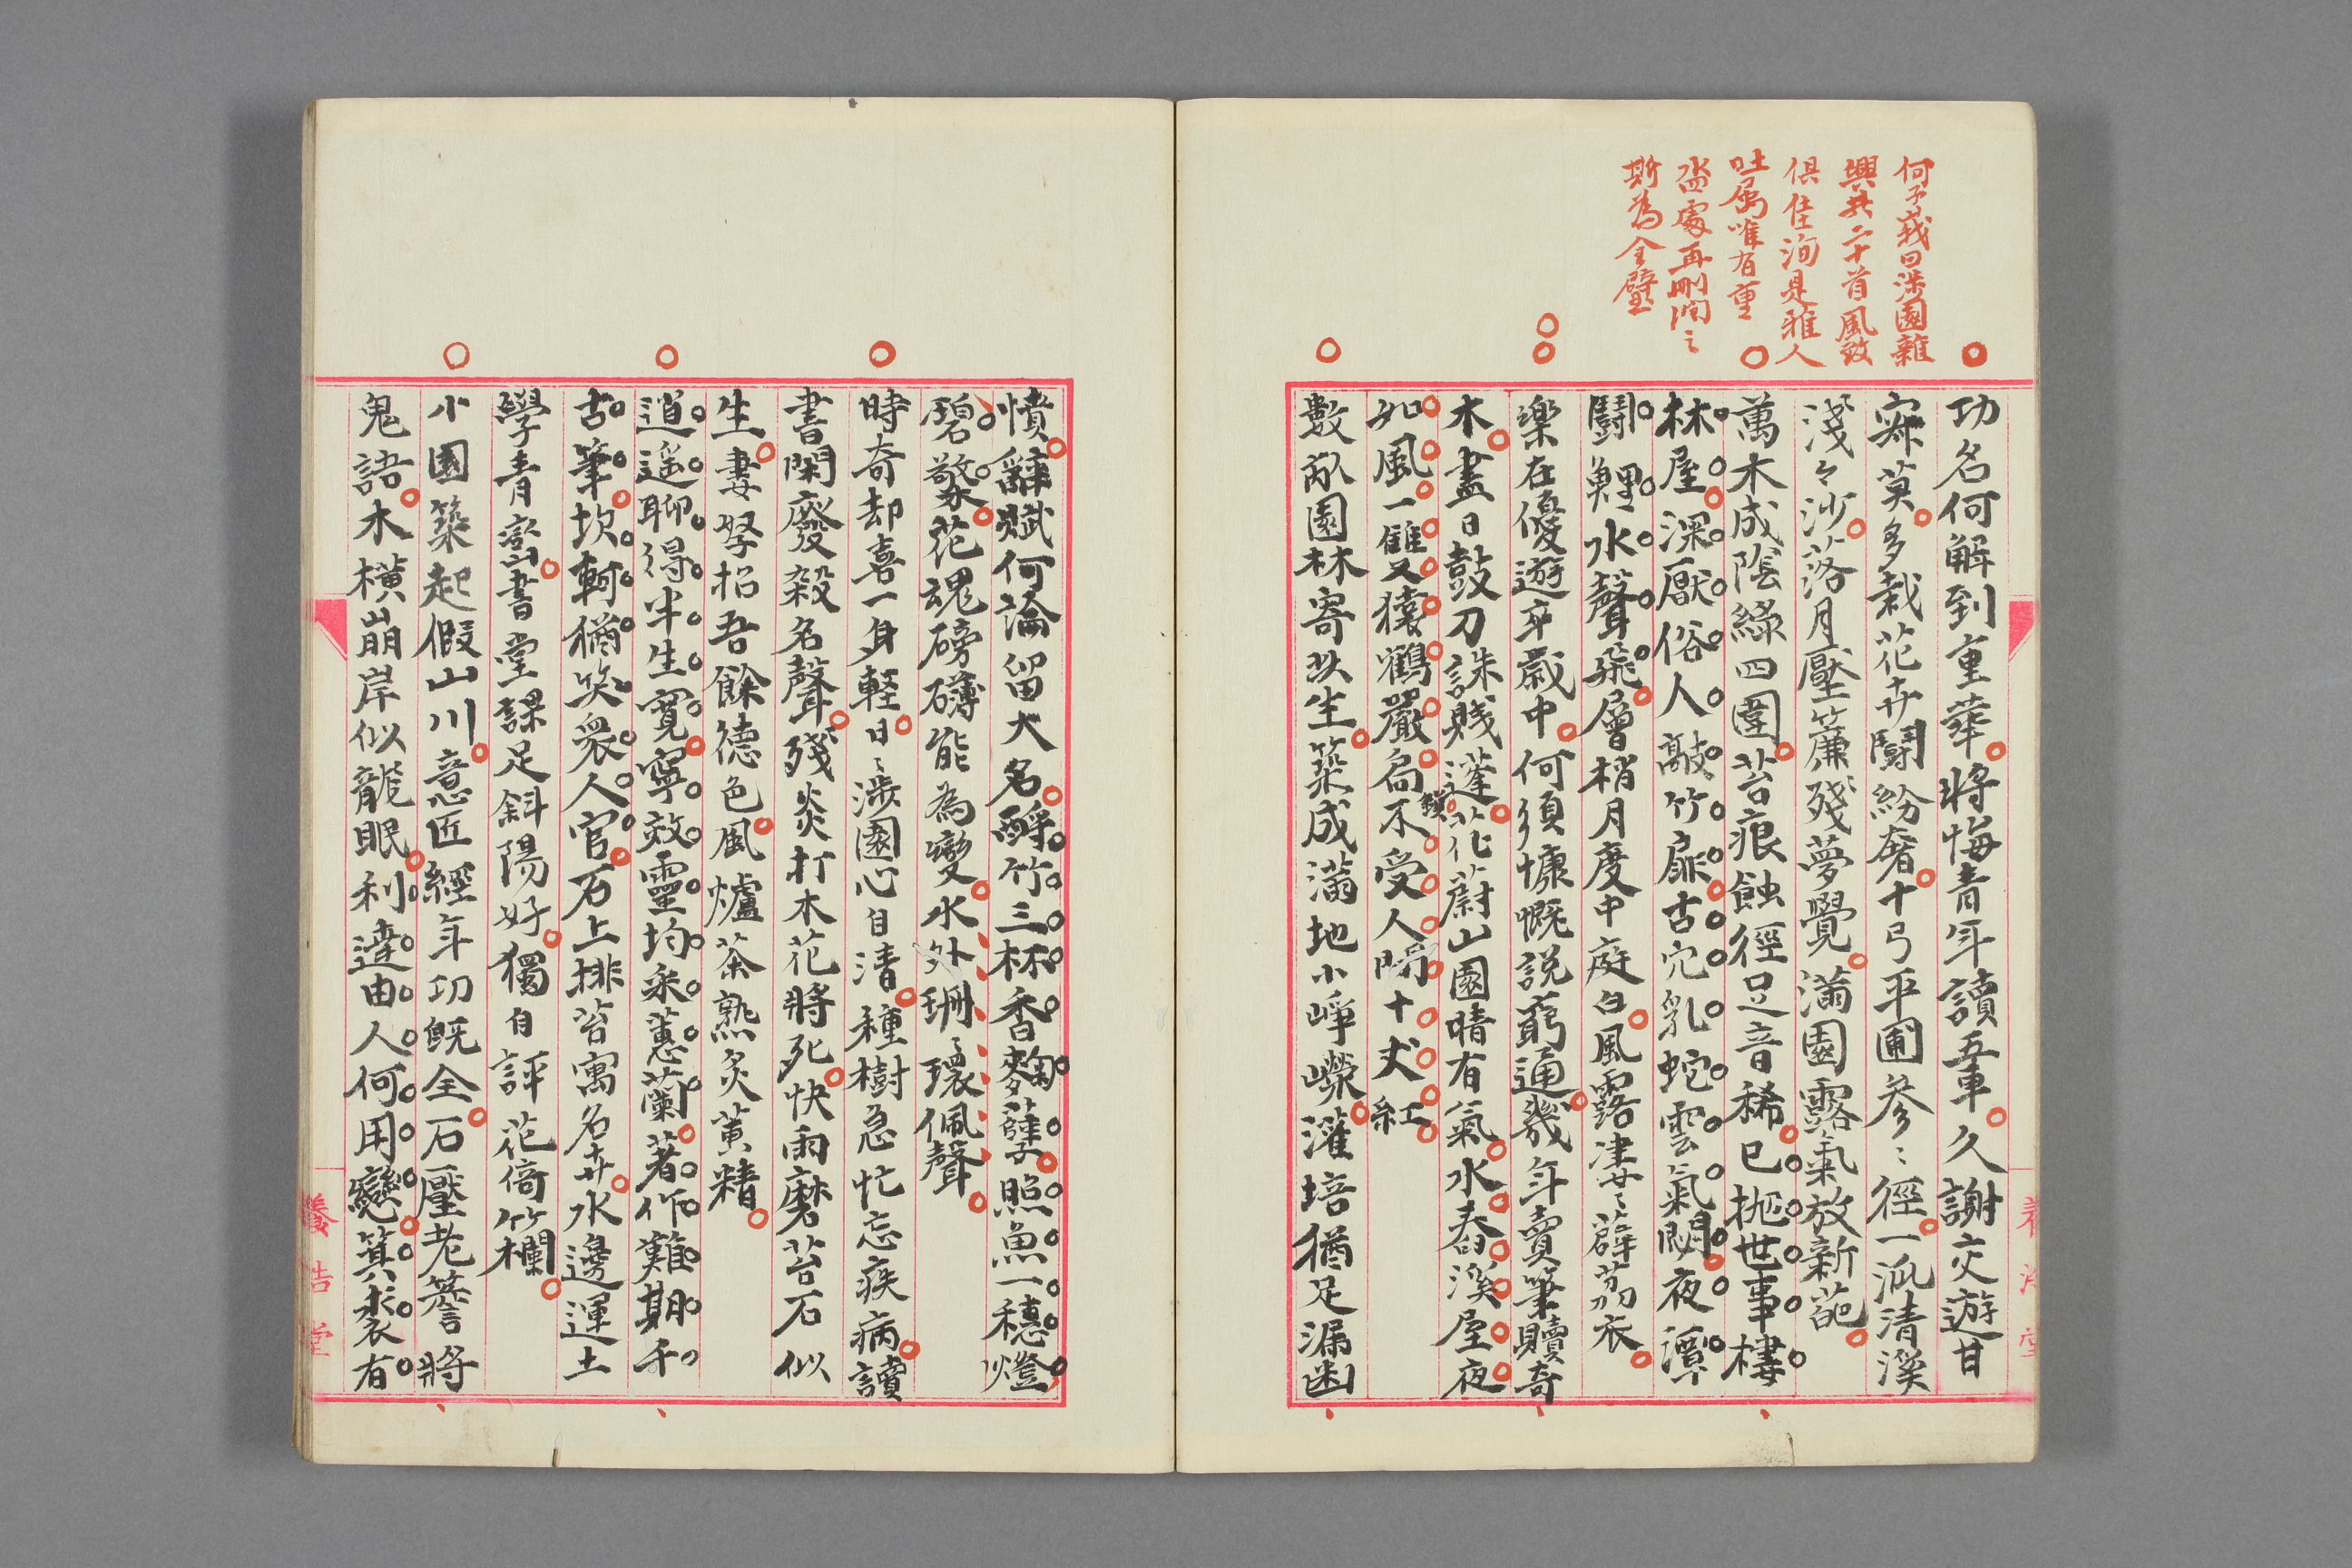 何子峩曰涉園雜
興共二十首風致
俱佳洵是雅人
吐屬唯有重
沓處再刪潤之
斯為全璧
功名何解到重華將悔青年讀五車久謝交遊甘
寂莫多栽花卉鬪紛奢十弓平圃參〻徑一派清溪
淺々沙落月壓簾殘夢覺滿園露氣放新葩
萬木成陰綠四圍苔痕蝕徑足音稀已拋世事棲
林屋深厭俗人敲竹扉古穴乳蛇雲氣閟夜潭
鬪鯉水聲飛層梢月度中庭白風露淒〻薜荔衣
樂在優遊卒歲中何須慷慨說窮通幾年賣筆贖奇
木盡日鼓刀誅賤蓬花蔚山園晴有氣水舂溪屋夜
如風一雙又猿鶴嚴扃不受人間十丈紅
鎖
數畝園林寄此生築成滿地小崢嶸灌培猶足漏幽
憤辭賦何論留大名酹竹三杯香麴孽照魚一穗燈
碧檠花魂磅礴能為變水外珊〻環佩聲
時奇却喜一身輕日〻涉園心自清種樹急忙忘疾病讀
書閑廢殺名聲殘炎打木花將死快雨磨苔石似
生妻孥招吾餘德色風爐茶熟炙黃精
逍遥聊得半生寬寧效靈均采蕙蘭著作難期千
古筆坎軻猶笑衆人官石上排苔寫名卉水邊運土
學青巒書堂課足斜陽好獨自評花倚竹欄
小園築起假山川意匠經年功既全石壓老簷將
鬼語木橫崩岸似龍眠利達由人何用戀箕裘有
養浩堂